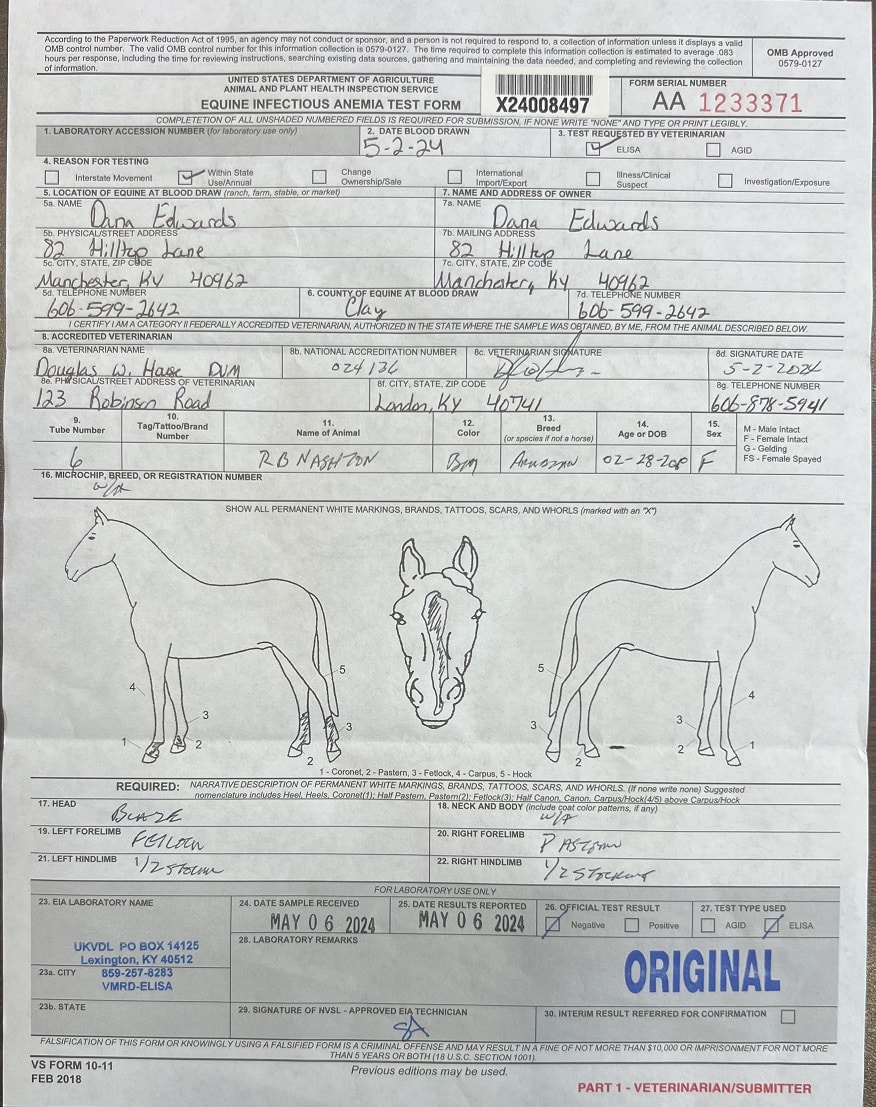 According to the Paperwork Reduction Act of 1995, an agency may not conduct or sponsor, and a person is not required to respond to, a collection of information unless it displays a valid
OMB control number. The valid OMB control number for this information collection is 0579-0127. The time required to complete this information collection is estimated to average .083
hours per response, including the time for reviewing instructions, searching existing data sources, gathering and maintaining the data needed, and completing and reviewing the collection
of information.
OMB Approved
0579-0127
UNITED STATES DEPARTMENT OF AGRICULTURE
ANIMAL AND PLANT HEALTH INSPECTION SERVICE
EQUINE INFECTIOUS ANEMIA TEST FORM
X24008497
FORM SERIAL NUMBER
AA 1233371
COMPLETETION OF ALL UNSHADED NUMBERED FIELDS IS REQUIRED FOR SUBMISSION, IF NONE WRITE "NONE" AND TYPE OR PRINT LEGIBLY.
1. LABORATORY ACCESSION NUMBER (for laboratory use only)
2. DATE BLOOD DRAWN
5-2-24
3. TEST REQUESTED BY VETERINARIAN
ELISA AGID
4. REASON FOR TESTING
Interstate Movement
Within State Use/Annual
Change Ownership/Sale
International Import/Export
Illness/Clinical Suspect
Investigation/Exposure
5. LOCATION OF EQUINE AT BLOOD DRAW (ranch, farm, stable, or market)
7. NAME AND ADDRESS OF OWNER
5a. NAME
Dana Edwards
7a. NAME
Dana Edwards
5b. PHYSICAL/STREET ADDRESS
82 Hilltop Lane
7b. MAILING ADDRESS
82 Hilltop Lane
5c. CITY, STATE, ZIP CODE
Manchester, KY 40962
7c. CITY, STATE, ZIP CODE
Manchester, Ky 40962
5d. TELEPHONE NUMBER
606-599-2642
6. COUNTY OF EQUINE AT BLOOD DRAW
Clay
7d. TELEPHONE NUMBER
606-599-2642
I CERTIFY I AM A CATEGORY II FEDERALLY ACCREDITED VETERINARIAN, AUTHORIZED IN THE STATE WHERE THE SAMPLE WAS OBTAINED, BY ME, FROM THE ANIMAL DESCRIBED BELOW.
8. ACCREDITED VETERINARIAN
8a. VETERINARIAN NAME
Douglas W. Hase DVM
8b. NATIONAL ACCREDITATION NUMBER
024136
8c. VETERINARIAN SIGNATURE
8d. SIGNATURE DATE
5-2-2024
8e. PHYSICAL/STREET ADDRESS OF VETERINARIAN
123 Robinson Road
8f. CITY, STATE, ZIP CODE
London, KY 40741
8g. TELEPHONE NUMBER
606-878-5941
9. Tube Number
10. Tag/Tattoo/Brand Number
11. Name of Animal
12. Color
13. Breed (or species if not a horse)
14. Age or DOB
15. Sex
M - Male Intact
F - Female Intact
G - Gelding
FS - Female Spayed
6 RB NASHTON F
16. MICROCHIP, BREED, OR REGISTRATION NUMBER
SHOW ALL PERMANENT WHITE MARKINGS, BRANDS, TATTOOS, SCARS, AND WHORLS (marked with an "X")
5
4
3
1
2
3
2
5
4
3
3
2
2
1
1 - Coronet, 2 - Pastern, 3 - Fetlock, 4 - Carpus, 5 - Hock
REQUIRED: NARRATIVE DESCRIPTION OF PERMANENT WHITE MARKINGS, BRANDS, TATTOOS, SCARS, AND WHORLS. (If none write none) Suggested
nomenclature includes Heel, Heels, Coronet(1); Half Pastern, Pastern(2); Fetlock(3); Half Canon, Canon, Carpus/Hock(4/5) above Carpus/Hock
17. HEAD
BLAZE
18. NECK AND BODY (include coat color patterns, if any)
19. LEFT FORELIMB
FETLOCK
20. RIGHT FORELIMB
PASTERN
21. LEFT HINDLIMB
1/2 STOCKING
22. RIGHT HINDLIMB
1/2 STOCKING
FOR LABORATORY USE ONLY
23. EIA LABORATORY NAME
UKVDL PO BOX 14125
Lexington, KY 40512
23a. CITY
859-257-8283
VMRD-ELISA
23b. STATE
24. DATE SAMPLE RECEIVED
MAY 06 2024
25. DATE RESULTS REPORTED
MAY 06 2024
26. OFFICIAL TEST RESULT
Negative Positive
27. TEST TYPE USED
AGID ELISA
28. LABORATORY REMARKS
ORIGINAL
29. SIGNATURE OF NVSL - APPROVED EIA TECHNICIAN
30. INTERIM RESULT REFERRED FOR CONFIRMATION
FALSIFICATION OF THIS FORM OR KNOWINGLY USING A FALSIFIED FORM IS A CRIMINAL OFFENSE AND MAY RESULT IN A FINE OF NOT MORE THAN $10,000 OR IMPRISONMENT FOR NOT MORE
THAN 5 YEARS OR BOTH (18 U.S.C. SECTION 1001).
VS FORM 10-11
FEB 2018
Previous editions may be used.
PART 1 - VETERINARIAN/SUBMITTER